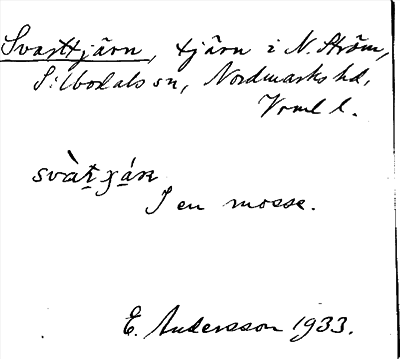 Svarttjärn, tjärn i N. Ström,
Silbodals sn, Nordmarks hd,
Vrml l.
svàt̠χá̠n
I en mosse.
E. Andersson 1933.